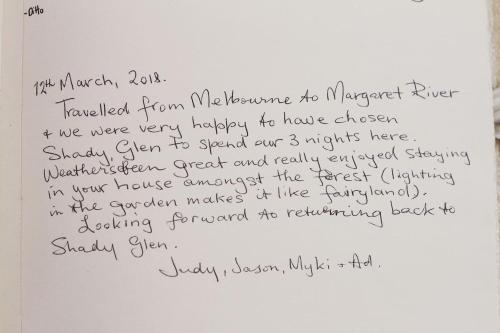 -Otto
12th March, 2018.
Travelled from Melbourne to Margaret River
+ we were very happy to have chosen
Shady Glen to spend our 3 nights here.
Weather's been great and really enjoyed staying
in your house amongst the forest (lighting
in the garden makes it like fairyland).
Looking forward to returning back to
Shady Glen.
Judy, Jason, Myki + Ad.